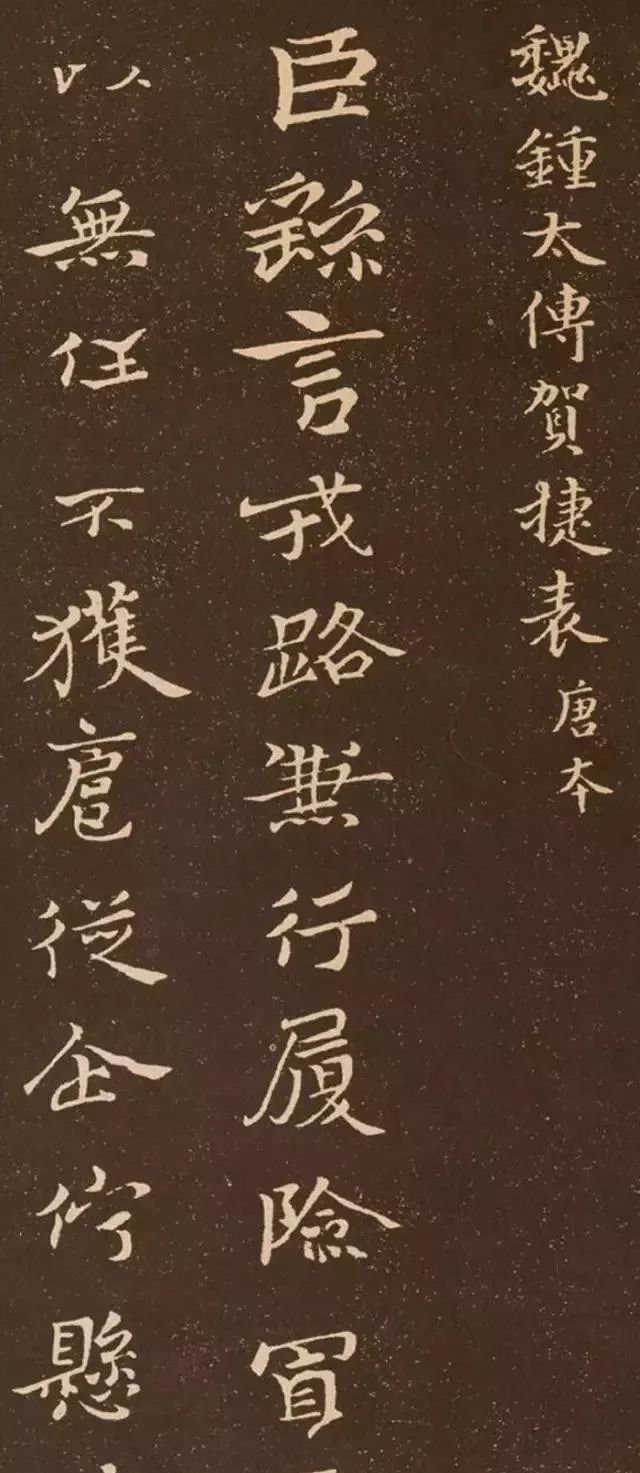 魏鍾太傅賀捷表唐本
臣繇言戎路兼行履險冒
以無任不獲扈從企佇懸